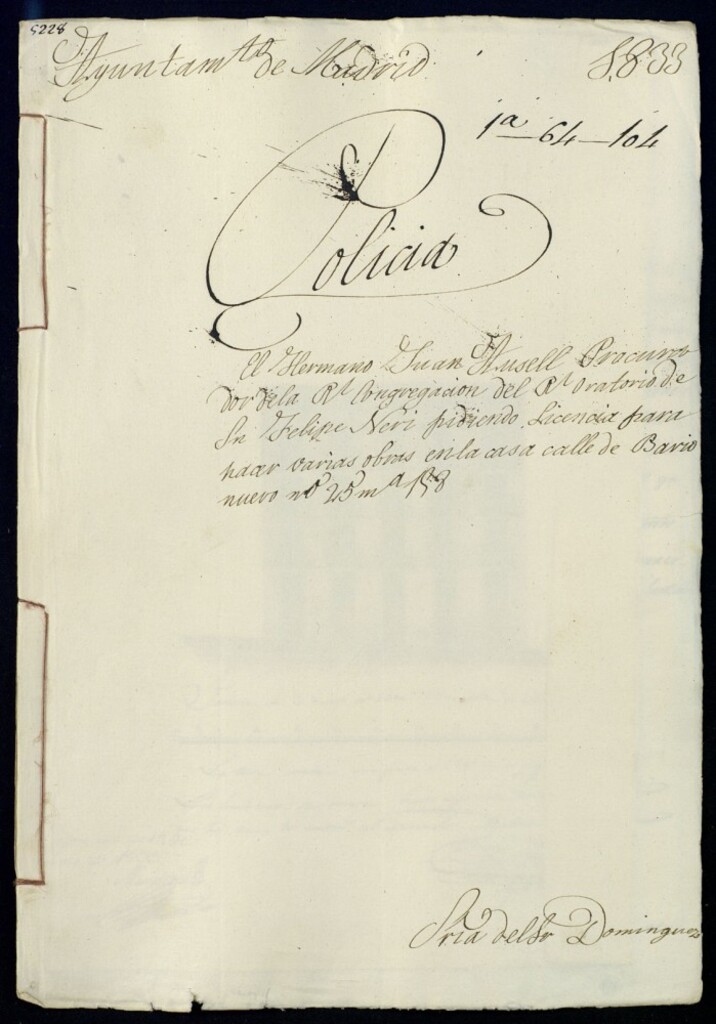 5228
Ayuntam.to de Madrid 1833
1ª 64-104
Policia
El Hermano Juan Ausell Procura
dor de la Rl Congregacion del Rl Oratorio de
Sn Felipe Neri pidiendo Licencia para
haar varias obras en la casa calle de Bario
nuevo nº 25 ma 158
Sria del Sr Dominguez